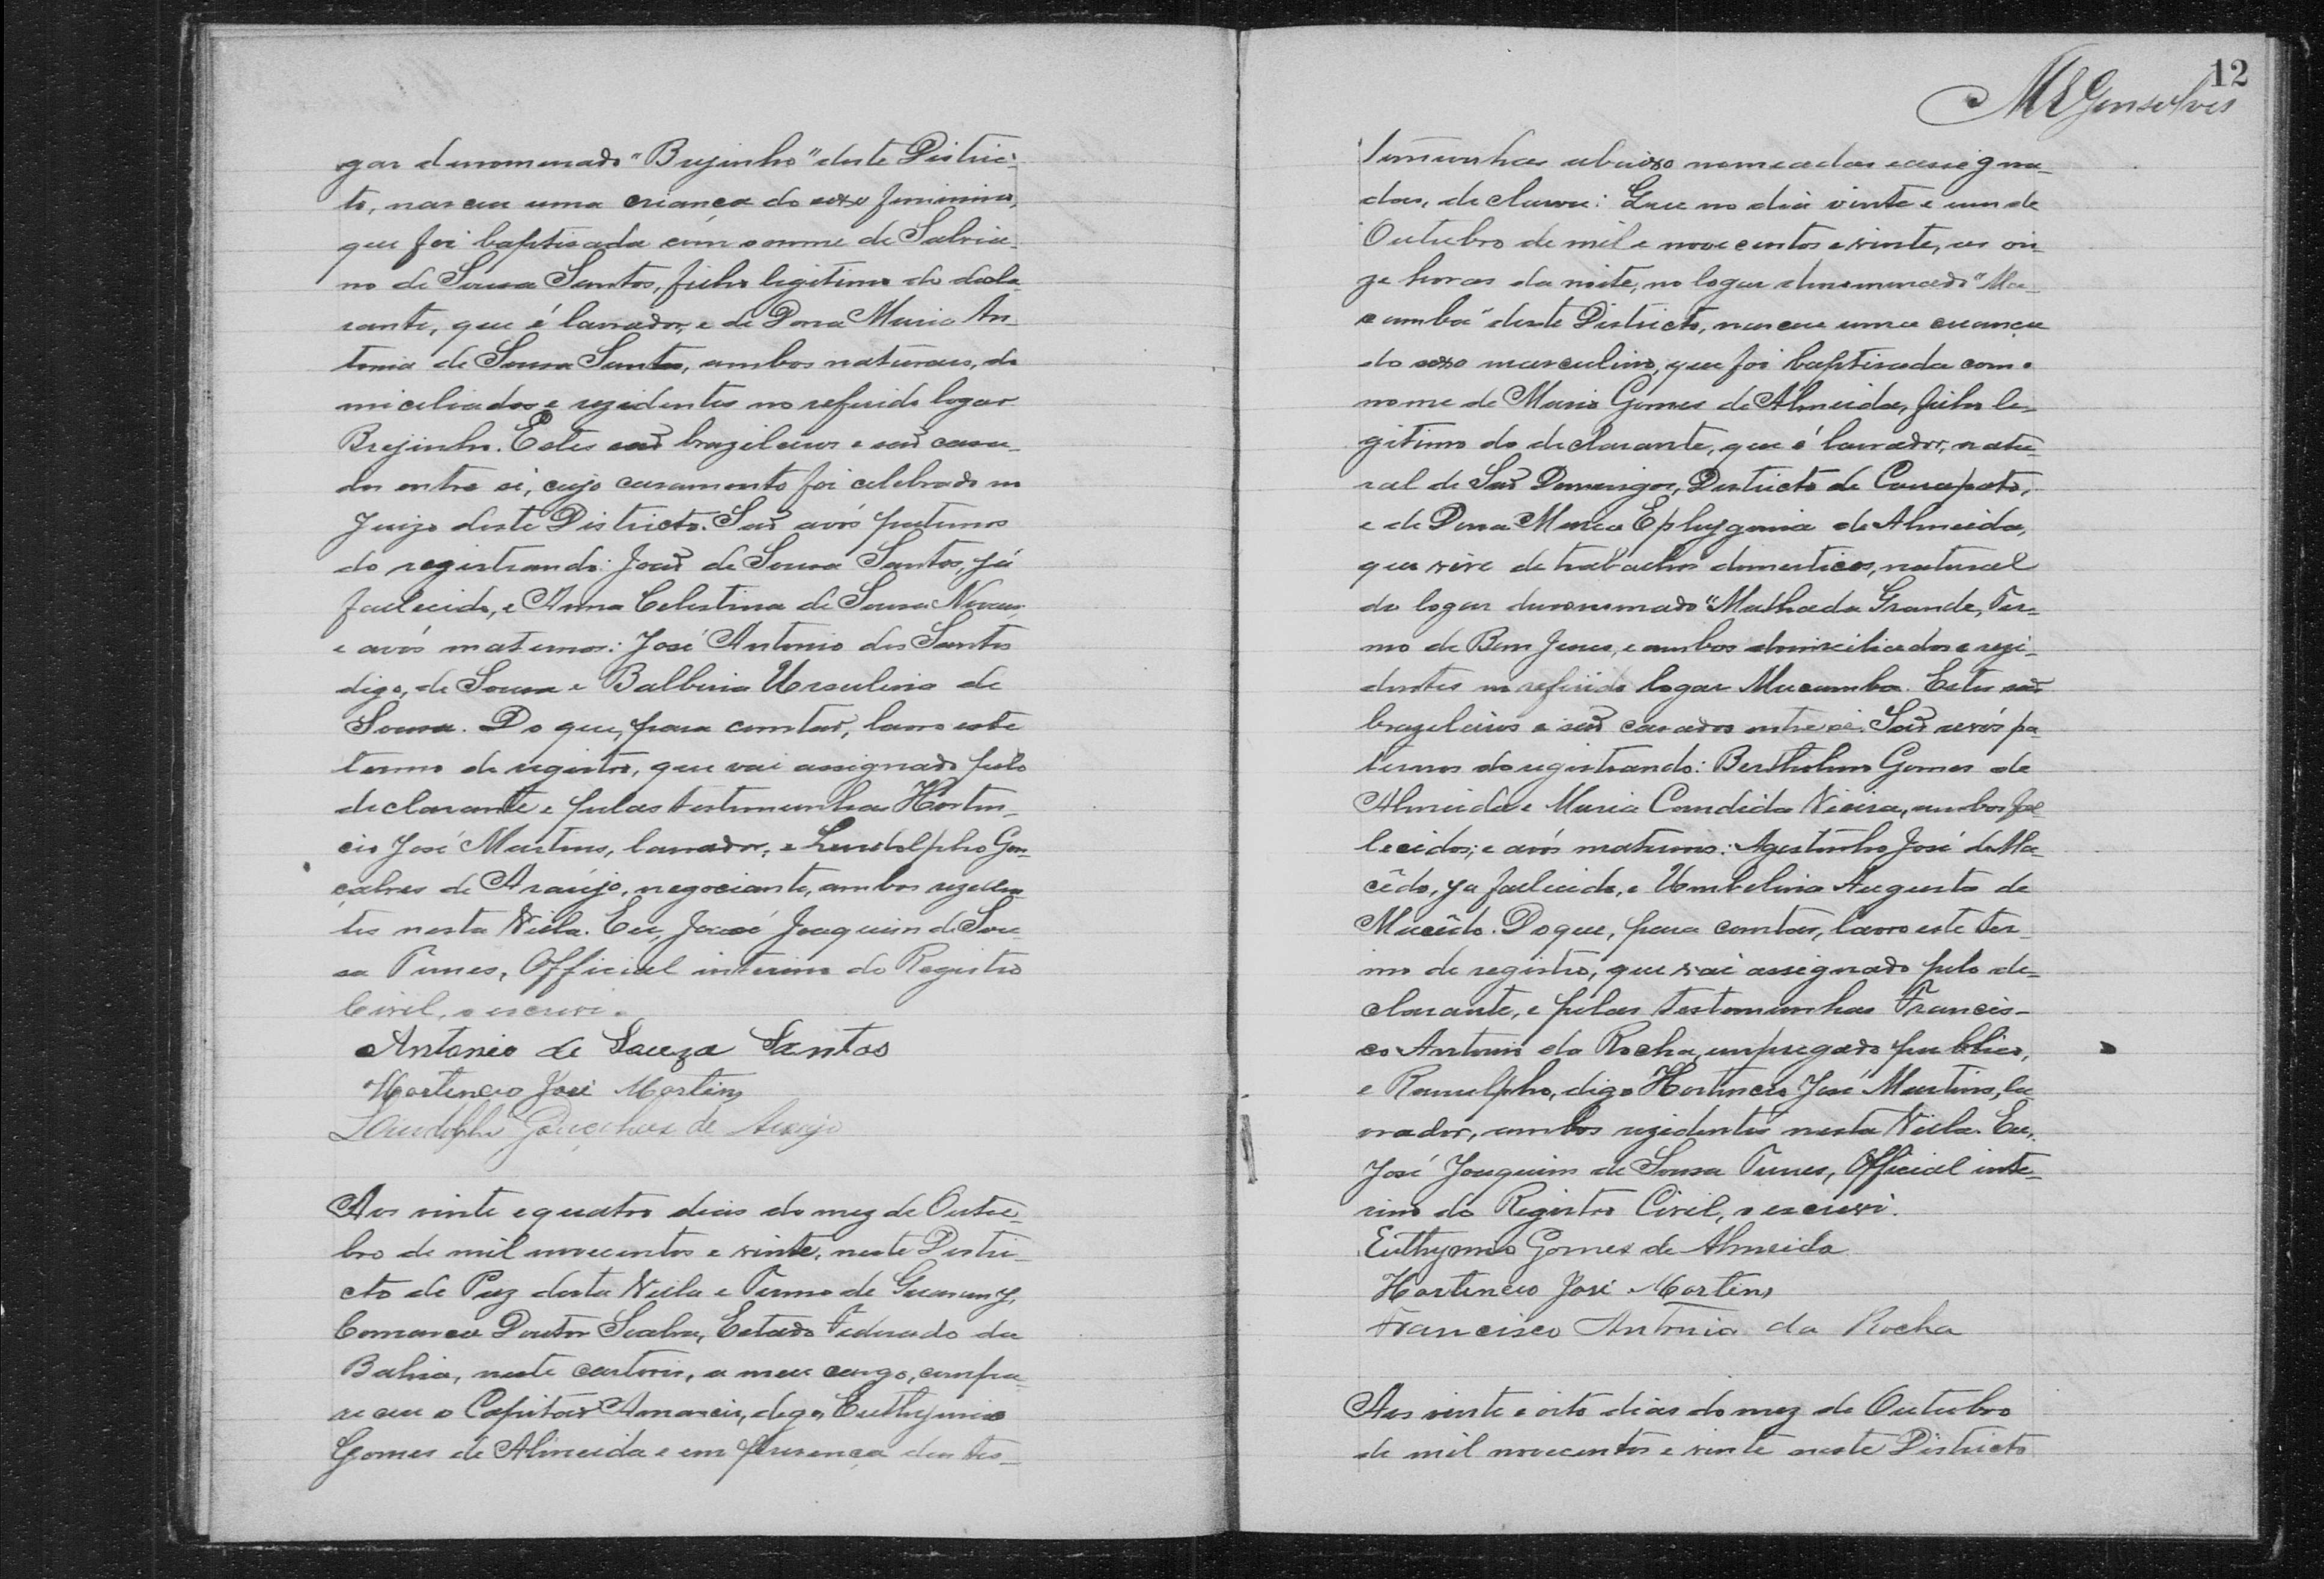 gar denominado "Brejinho" deste Distric-
to, nasceu uma criança do sexo feminino,
que foi baptisada com o nome de Salvia-
no de Sousa Santos, filho legitimo do decla-
rante, que é lavrador, e de Dona Maria An-
tonia de Sousa Santos, ambos naturaes, do-
miciliados e rezidentes no referido logar
Brejinho. Estes são brazileiros e são casa-
dos entre si, cujo casamento foi celebrado no
Juizo deste Districto. São avós paternos
do registrando: João de Sousa Santos, já
fallecido, e Anna Celestina de Sousa Novaes,
e avós maternos: José Antonio dos Santos
digo, de Sousa e Balbina Ursulina de
Sousa. Do que, para constar, lavro este
termo de registro, que vai assignado pelo
declarante e pelas testemunhas Horten-
cio José Martins, lavrador, e Lindolpho Gon-
çalves de Araújo, negociante, ambos reziden-
tes nesta Villa. Eu, José Joaquim de Sou-
sa Tunes, Official interino do Registro
Civil, o escrevi.
Antonio de Souza Santos
Hortencio José Martins
Lindolpho Gonçalves de Araujo
Aos vinte e quatro dias do mez de Outu-
bro de mil novecentos e vinte, neste Distri-
cto de Paz desta Villa e Termo de Guarany,
Comarca Doutor Seabra, Estado Federado da
Bahia, neste cartorio, a meu cargo, compa-
receu o Capitão Amancio, digo, Euthymio
Gomes de Almeida e em presença das tes-
12
MLGonsalves
temunhas abaixo nomeadas e assigna-
das, declarou: Que no dia vinte e um de
Outubro de mil e novecentos e vinte, as on-
ze horas da noite, no logar denominado "Ma-
cumba" deste Districto, nasceu uma criança
do sexo masculino, que foi baptisada com o
nome de Mario Gomes de Almeida, filho le-
gitimo do declarante, que é lavrador, natu-
ral de São Domingos, Districto de
e de Dona Maria Ephygenia de Almeida,
que vive de trabalhos domesticos, natural
do logar denominado "Malhada Grande, Ter-
mo de Bom Jesus, e ambos domiciliados e rezi-
dentes no referido logar Macumba. Estes são
brazileiros e são casados entre si. São avós pa-
ternos do registrando: Bertholino Gomes de
Almeida e Maria Candida Vieira, ambos fal-
lecidos; e avós maternos: Agostinho José de Ma-
cêdo, ja fallecido, e Umbelina Augusta de
Macêdo. Do que, para constar, lavro este ter-
mo de registro, que vai assignado pelo de-
clarante, e pelas testemunhas Francis-
co Antonio da Rocha, empregado publico,
e Ranulpho, digo Hortencio José Martins, la-
vrador, ambos rezidentes nesta Villa. Eu,
José Joaquim de Sousa Tunes, Official inte-
rino do Registro Civil, o escrevi.
Euthymio Gomes de Almeida
Hortencio José Martins
Francisco Antonio da Rocha
Aos vinte e oito dias do mez de Outubro
de mil novecentos e vinte neste Districto